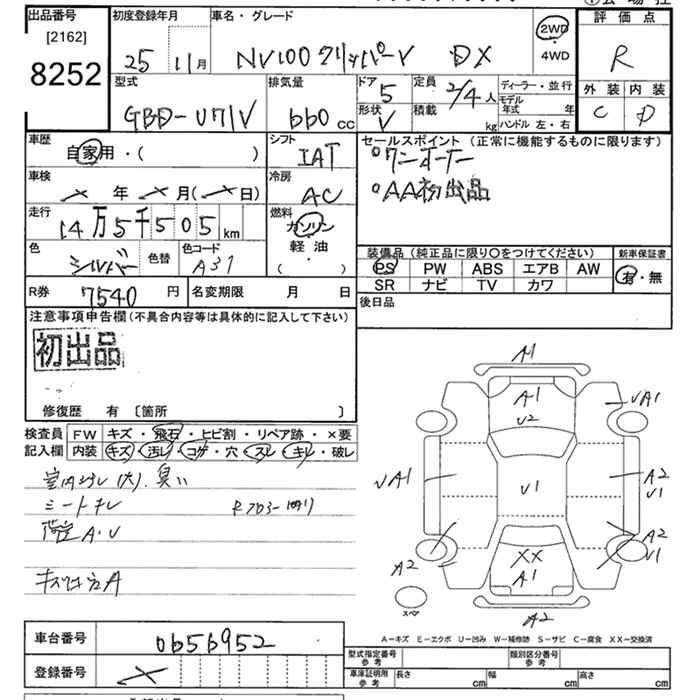 出品番号
[2162]
8252
初度登録年月
25 11月
車名・グレード
NV100クリッパーV DX
2WD
・
4WD
評価点
R
外装 内装
C D
型式
GBD-U71V
排気量
660cc
ドア
5
形状
V
定員
2/4人
積載
kg
ディーラー・並行
モデル年式 年
ハンドル 左・右
車歴
自家用・( )
シフト
IAT
セールスポイント(正常に機能するものに限ります)
ワンオーナー
AA初出品
車検
年 月( 日)
冷房
AC
走行
14万5千505km
燃料
ガソリン
軽油
( ・ )
色
シルバー
色替
色コード
A31
装備品(純正品に限り〇をつけてください)
新車保証書
PS PW ABS エアB AW
SR ナビ TV カワ
有・無
R券 7540円
名変期限 月 日
後日品
注意事項申告欄(不具合内容等は具体的に記入して下さい)
初出品
修復歴 有 〔箇所 〕
検査員記入欄
FW キズ・飛石・ヒビ割・リペア跡・×要
内装 キズ・汚レ・コゲ・穴・スレ・キレ・破レ
室内ヨゴレ(大).臭い
シートキレ
A1
A1
U2
UA1
UA1
U1
A2
U1
A2
U1
A2
XX
A1
A2
スペア
A-キズ E-エクボ U-凹み W-補修跡 S-サビ C-腐食 XX-交換済
車台番号 0656952
登録番号
型式指定番号
参考
類別区分番号
参考
車庫証明用
参考
長さ cm 幅 cm 高さ cm